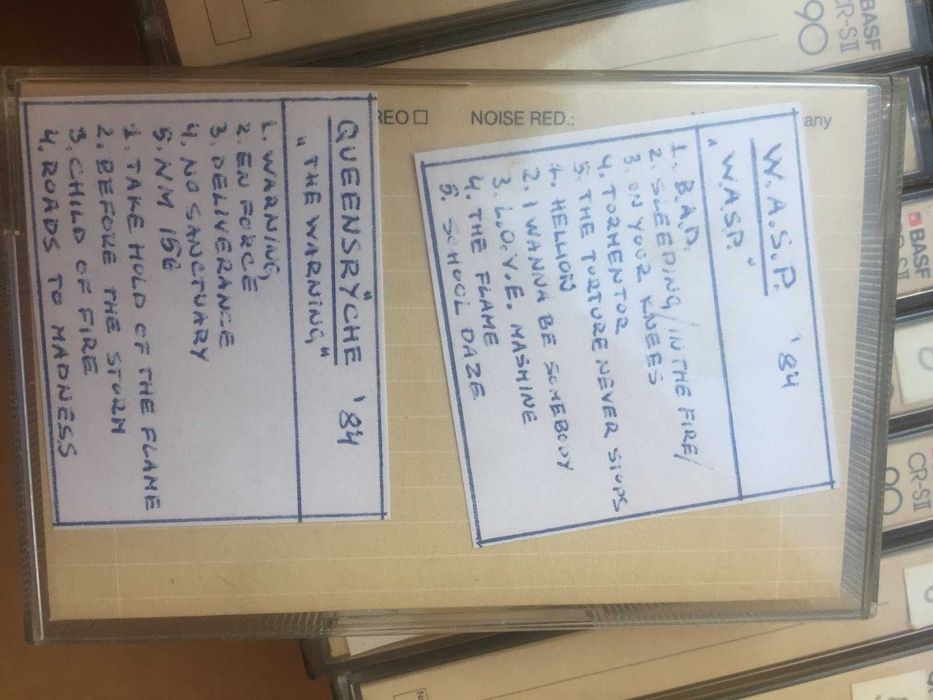 BASF
CR-SII
90
REO □ NOISE RED.:
any
W.A.S.P. '84
„W.A.S.P."
1. B.A.D.
2. SLEEPING /IN THE FIRE/
3. ON YOUR KNEES
4. TORMENTOR
5. THE TORTURE NEVER STOPS
1. HELLION
2. I WANNA BE SOMEBODY
3. L.O.V.E. MASHINE
4. THE FLAME
5. SCHOOL DAZE
QUEENSRŸCHE '84
„THE WARNING"
1. WARNING
2. EN FORCE
3. DELIVERANCE
4. NO SANCTUARY
5. NM 156
1. TAKE HOLD OF THE FLAME
2. BEFORE THE STORM
3. CHILD OF FIRE
4. ROADS TO MADNESS
BASF
CR-SII
90